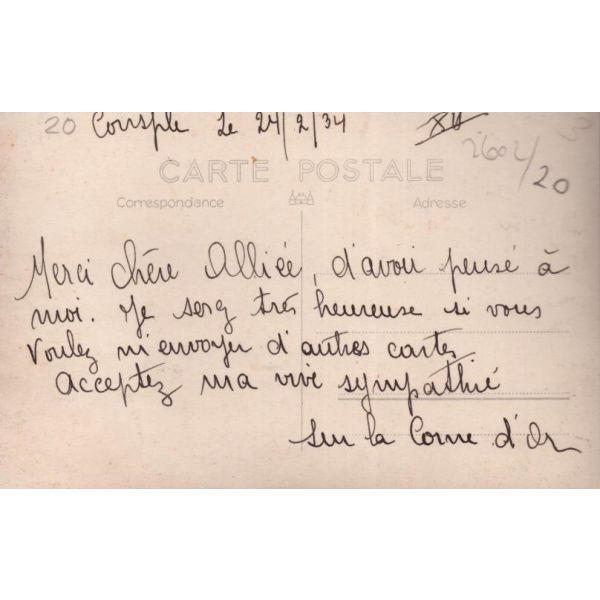 20 Consple Le 24/2/34
2602/20
CARTE POSTALE
Correspondance Adresse
Merci chère Alliée, d'avoir pensé à
moi. Je serez très heureuse si vous
voulez m'envoyer d'autres cartes
Acceptez ma vive sympathie
Sur la Corne d'Or